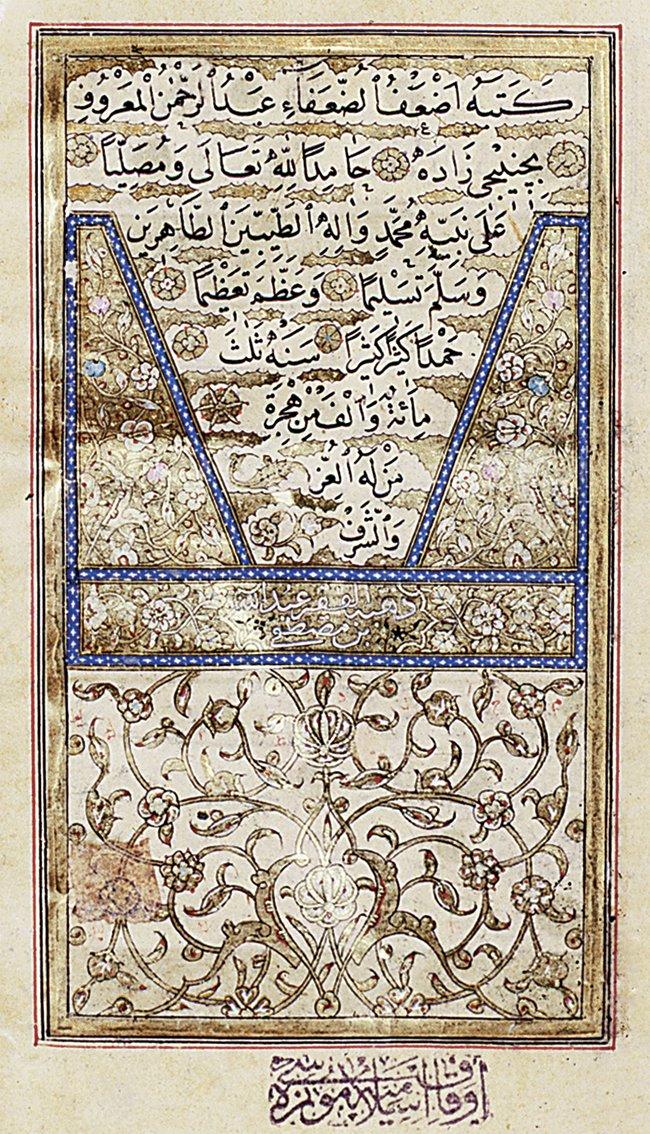 كَتَبَهُ اَضْعَفُ الضُّعَفَاءِ عَبْدُ الرَّحْمٰنِ الْمَعْرُوفِ
زَادَهْ حَامِدًا لِلّٰهِ تَعَالَى وَمُصَلِّيًا
عَلَى نَبِيِّهِ مُحَمَّدٍ وَاٰلِهِ الطَّيِّبِينَ الطَّاهِرِينَ
وَسَلَّمَ تَسْلِيمًا وَعَظَّمَ تَعْظِيمًا
حَمْدًا كَثِيرًا كَثِيرًا سَنَةَ ثَلٰثَ
مِائَةٍ وَاَلْفٍ مِنْ هِجْرَةِ
مَنْ لَهُ الْعِزُّ
وَالشَّرَفُ
ذهبه الفقير عبد الله
بن مصطفى
أوقاف اسلاميه موزه سى